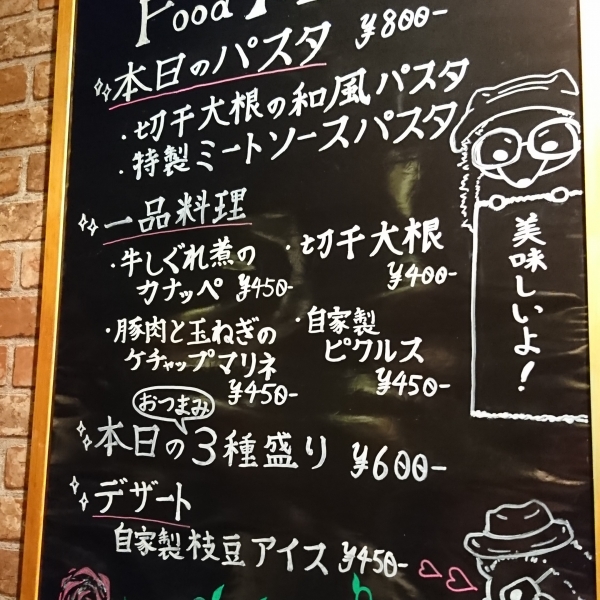 Food
¥800-
本日のパスタ
・切干大根の和風パスタ
・特製ミートソースパスタ
一品料理
・牛しぐれ煮の
カナッペ ¥450-
・切干大根
¥400-
・豚肉と玉ねぎの
ケチャップマリネ
¥450-
・自家製
ピクルス
¥450-
おつまみ
本日の3種盛り ¥600-
デザート
自家製枝豆アイス ¥450-
美味しいよ!